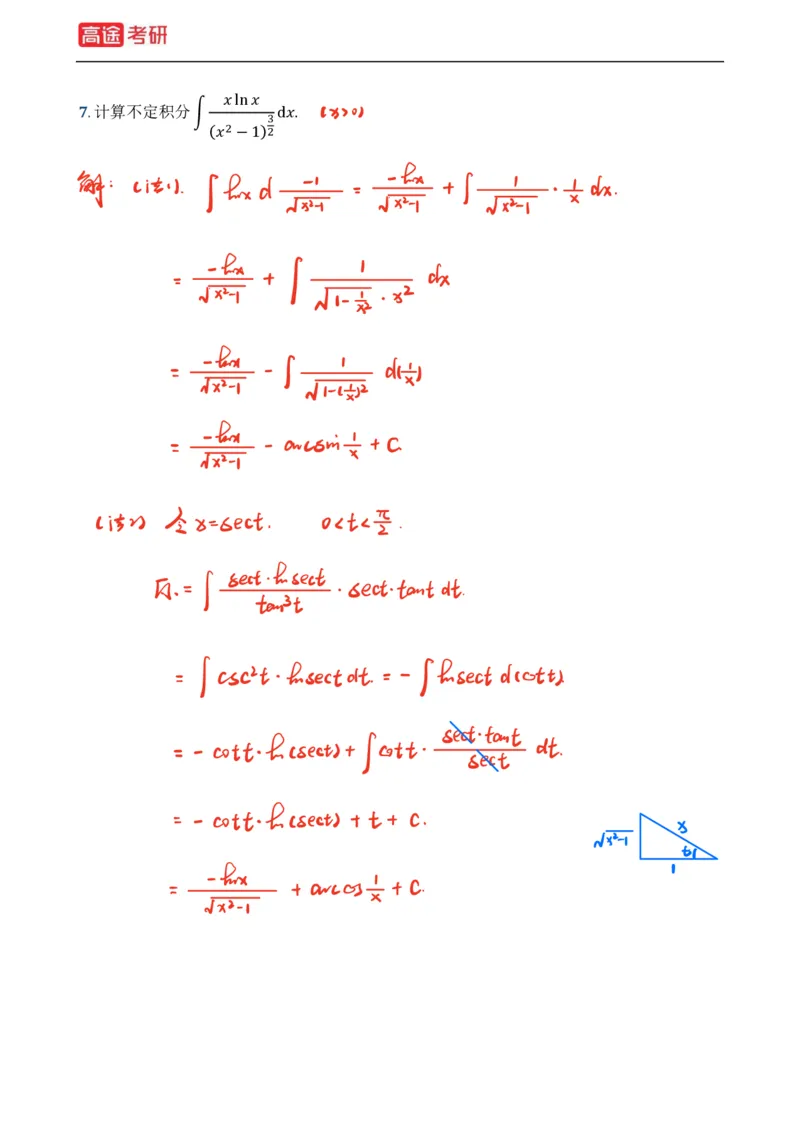 高途考研
7. 计算不定积分 ∫ x ln x / (x² − 1)^(3/2) dx. (x>0)
解: (法1). ∫ lnx d (-1/√(x²-1)) = -lnx/√(x²-1) + ∫ 1/√(x²-1) · 1/x dx.
= -lnx/√(x²-1) + ∫ 1/(√(1-1/x²) · x²) dx
= -lnx/√(x²-1) - ∫ 1/√(1-(1/x)²) d(1/x)
= -lnx/√(x²-1) - arcsin 1/x + C
(法2) 令 x=sect. 0<t<π/2.
原.= ∫ (sect·ln sect)/tan³t · sect·tant dt.
= ∫ csc²t · ln sect dt. = - ∫ ln sect d(cott)
= - cott·ln(sect) + ∫ cott · (sect·tant)/sect dt.
= - cott·ln(sect) + t + C.
√(x²-1) x t 1
= -lnx/√(x²-1) + arccos 1/x + C.